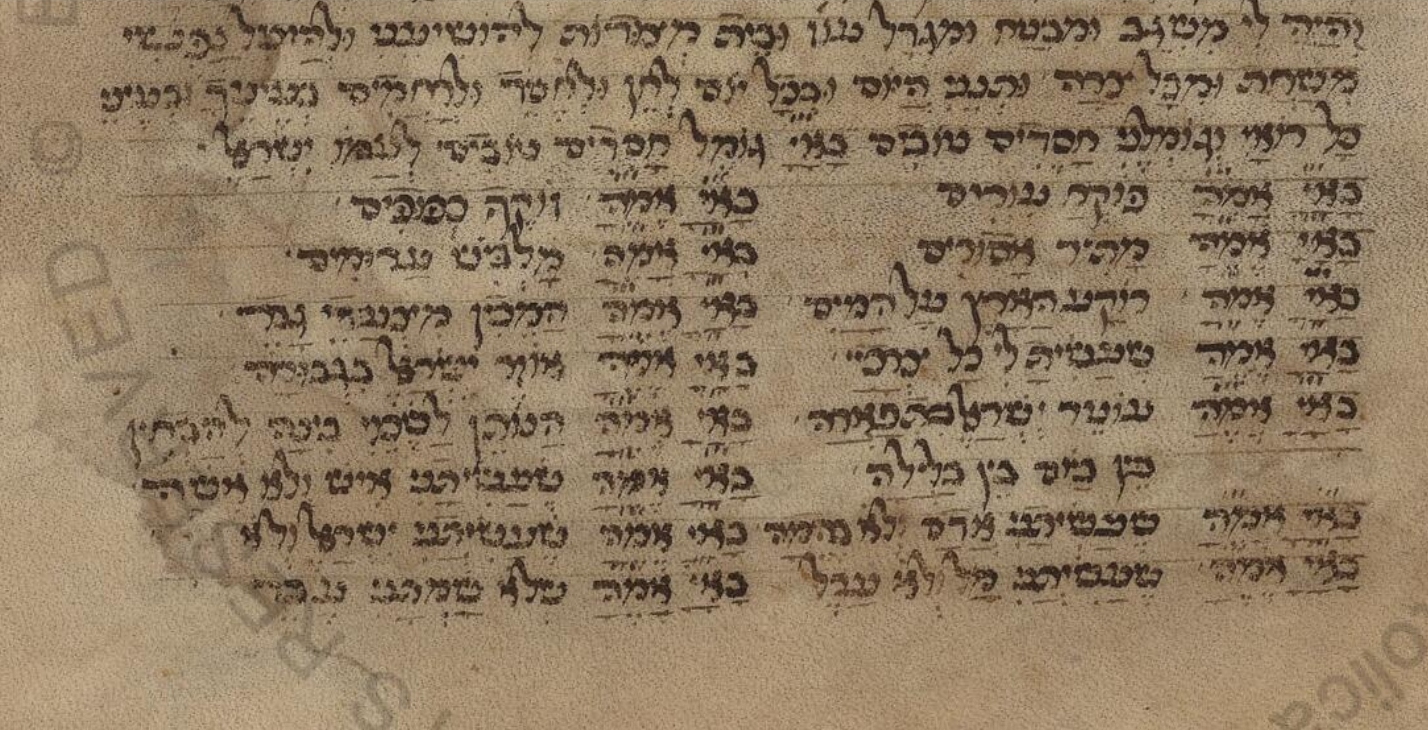 והיה לי משגב ומבטח ומגדל עוז ובית מצודות להושיעני ולהציל נפשי
משחת ומכל צרה ותנני היום ובכל יום לחן ולחסד ולרחמים בעיניך ובעיני
כל רואי וגומלני חסדים טובים באי גומל חסדים טובים לעמו ישראל
באי אמה פוקח עורים באי אמה זוקף כפופים
באי אמה מתיר אסורים באי אמה מלביש ערומים
באי אמה רוקע הארץ על המים באי אמה המכין מיצעדי גבר
באי אמה שעשית לי כל צרכי באי אמה אוזר ישראל בגבורה
באי אמה עוטר ישראל בתפארה באי אמה הנותן לשכוי בינה להבחין
בין יום בין לילה באי אמה שעשיתני איש ולא אשה
באי אמה שעשיתני אדם ולא בהמה באי אמה שעשיתני ישראל ולא
באי אמה שעשיתני מל ולא ערל באי אמה שלא שמתני עבד